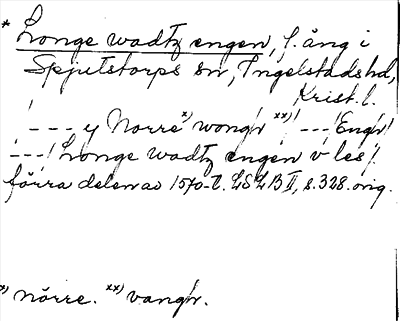 * Longe wadtz engen, f. äng i
Spjutstorps sn, Ingelstads hd,
Krist. l.
/--- y Norre x) wongr xx) /---/ Engr/
/---/ Longe wadtz engen v les/.
förra delen av 1570-t. LSLB II, s. 328. orig.
x) nörre. xx) vangr.